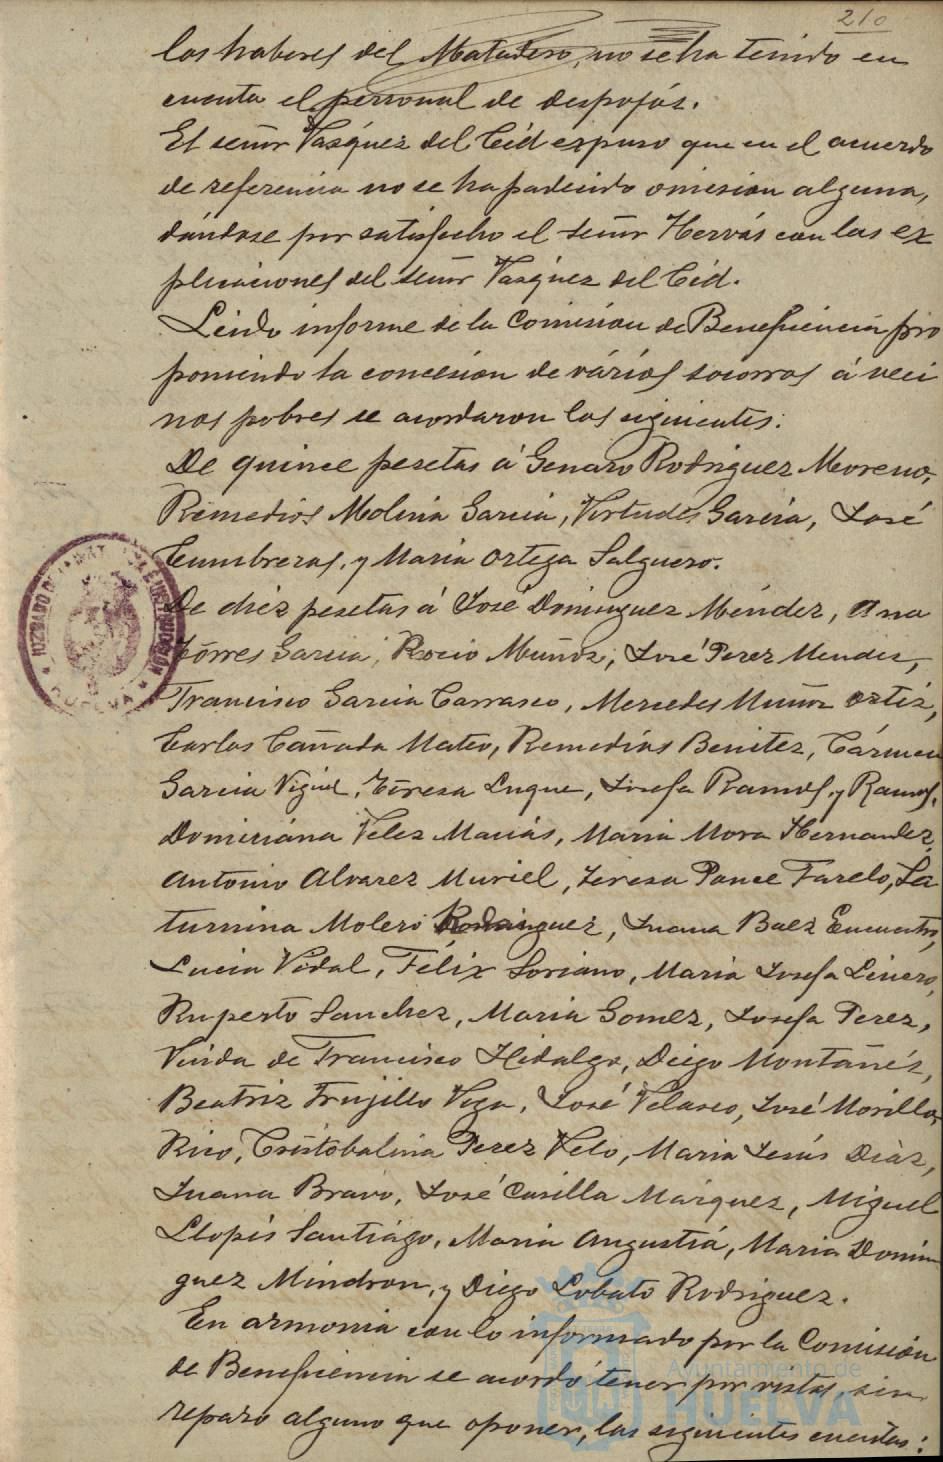 210
los haberes del Matadero, no se ha tenido en
cuenta el personal de despojós.
El señor Vasquez del Cid expuso que en el acuerdo
de referencia no se ha padecido omision alguna,
dándose por satisfecho el señor Hervás con las ex
plicaciones del señor Vasquez del Cid.
Leido informe de la Comision de Beneficiencia pro
poniendo la concesion de vários socorros á veci
nos pobres se acordaron los siguientes:
De quince pesetas á Genaro Rodriguez Moreno,
Remedios Molina Garcia, Virtudes Garcia, José
Cumbreras, y Maria Ortega Salguero.
De diéz pesetas á José Dominguez Méndez, Ana
Tórres Garcia, Rocio Muñoz, José Perez Mendez,
Francisco Garcia Carrasco, Mercedes Muñoz Ortiz,
Carlos Cañada Mateo, Remedios Benitez, Cármen
Garcia Vigué, Teresa Luque, Josefa Ramos, y Ramos,
Domiciána Velez Maciás, Maria Mora Hernandez,
Antonio Alvarez Muriel, Teresa Ponce Farelo, Sa
turnina Molero Rodriguez, Juana Baez Encuentro,
Lucia Vidal, Félix Soriano, Maria Josefa Linero,
Ruperto Sanchez, Maria Gomez, Josefa Perez,
Viuda de Francisco Hidalgo, Diego Montañés,
Beatriz Trujillo Vega, José Velasco, José Morillo
Rico, Cristobalina Perez Velo, Maria Jesús Diáz,
Juana Bravo, José Casilla Marquez, Miguel
Llopis Santiágo, Maria Angustiá, Maria Domin
guez Mindron, y Diego Lobato Rodriguez.
En armonia con lo informado por la Comision
de Beneficiencia se acordó tener por vistas, sin
reparo alguno que oponer, las siguientes cuentas:
JUZGADO DE
HUELVA
Ayuntamiento de
HUELVA